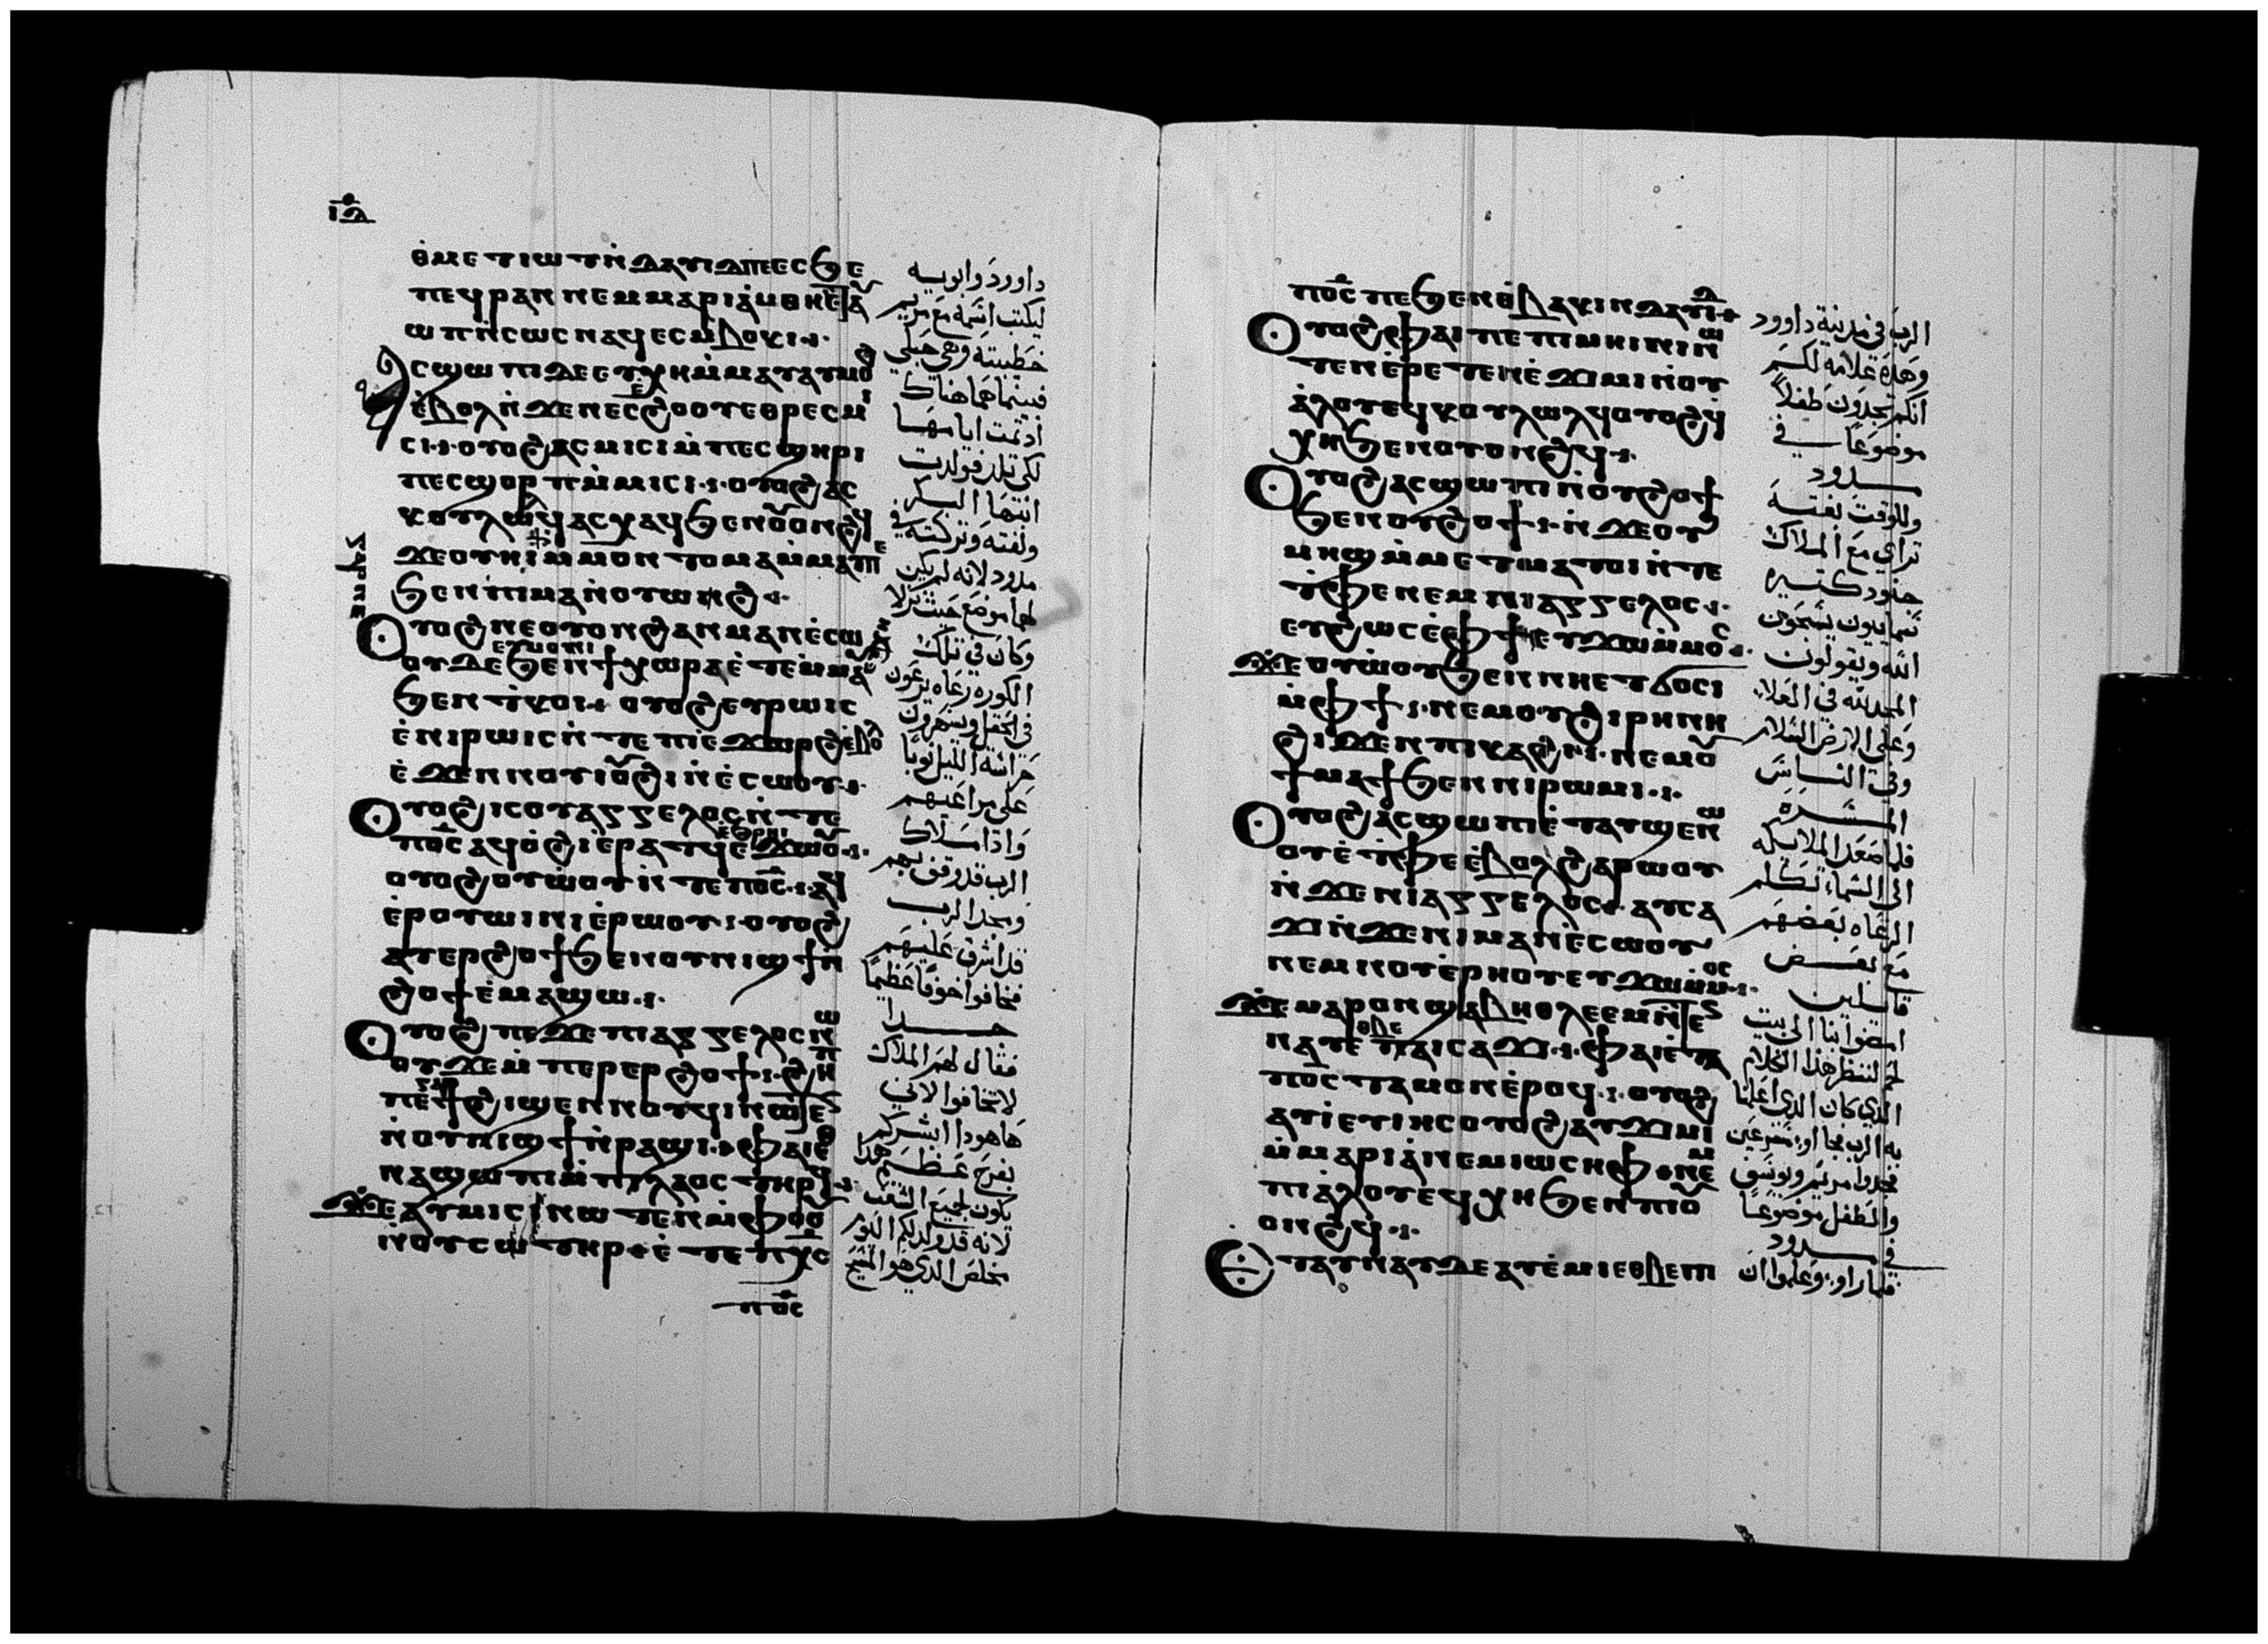 ⲓⲇ
ⲑⲙⲉⲧⲓⲱⲧ ⲛ̀ⲇⲁⲩⲓⲇ ⲡⲉ ⲉⲥϧⲉ
ⲡⲉϥⲣⲁⲛ ⲛⲉⲙ ⲙⲁⲣⲓⲁ̀ⲙ ⲑⲏ ⲉ̀ⲧⲁⲩ
ⲱⲡ ⲛ̀ⲥⲱⲥ ⲛⲁϥ ⲉⲥⲙ̀ⲃⲟⲕⲓ
ⲁⲥϣⲱⲡⲓ ⲇⲉ ⲉⲩⲭⲏ ⲙ̀ⲙⲁⲩ ⲁⲩⲙⲟϩ
ⲉ̀ⲃⲟⲗ ⲛ̀ϫⲉ ⲛⲉⲥⲉϩⲟⲟⲩ ⲉⲑⲣⲉⲥⲙⲓ
ⲥⲓ ⲟⲩⲟϩ ⲁⲥⲙⲓⲥⲓ ⲙ̀ⲡⲉⲥϣⲏⲣⲓ
ⲡⲉⲥϣⲟⲣⲡ ⲙ̀ⲙⲓⲥⲓ ⲟⲩⲟϩ ⲁⲥ
ⲕⲟⲩⲗⲱⲗϥ ⲁⲥⲭⲁϥ ϧⲉⲛ ⲟⲩⲟⲛϩϥ
ϫⲉ ⲟⲩⲏⲓ ⲙ̀ⲙⲟⲛ ⲧⲟⲩ ⲙⲁ ⲙ̀ⲙⲁⲩ ⲡⲉ
ϧⲉⲛ ⲡⲓⲙⲁⲛ̀ⲟⲩⲱϩ
ⲅⲁⲣ ⲡⲉ
ⲟⲩⲟϩ ⲛⲉ ⲟⲩⲟⲛ ϩⲁⲛⲙⲁⲛⲉ̀ⲥⲱ
ⲟⲩ ⲇⲉ ϧⲉⲛ ϯⲭⲱⲣⲁ ⲉ̀ⲧⲉⲙ̀ⲙⲁⲩ
ⲉⲩⲙⲟⲛⲓ
ϧⲉⲛ ⲧ̀ⲕⲟⲓ ⲟⲩⲟϩ ⲉⲩⲣⲱⲓⲥ
ⲉ̀ⲛⲓⲣⲱⲓⲥ ⲛ̀ⲧⲉ ⲡⲓⲉ̀ϫⲱⲣϩ ⲉ̀ⲃⲟⲗ
ⲉ̀ϫⲉⲛ ⲛⲟⲩⲓⲟϩⲓ ⲛ̀ⲉ̀ⲥⲱⲟⲩ
ⲟⲩⲟϩ ⲓⲥ ⲟⲩⲁⲅⲅⲉⲗⲟⲥ ⲛ̀ⲧⲉ
ⲡⲟ̅ⲥ̅ ⲁϥⲟ̀ϩⲓ ⲉ̀ⲣⲁⲧϥ ⲉ̀ϩⲣⲏⲓ ⲉ̀ϫⲱⲟⲩ
ⲟⲩⲟϩ ⲟⲩⲱ̀ⲟⲩ ⲛ̀ⲧⲉ ⲡⲟ̅ⲥ̅ ⲁϥ
ⲉ̀ⲣⲟⲩⲱⲓⲛⲓ ⲉ̀ⲣⲱⲟⲩ ⲟⲩⲟϩ
ⲁⲩⲉⲣϩⲟϯ ϧⲉⲛ ⲟⲩⲛⲓϣϯ ⲛ̀
ϩⲟϯ ⲉ̀ⲙⲁϣⲱ
ⲟⲩⲟϩ ⲡⲉϫⲉ ⲡⲓⲁⲅⲅⲉⲗⲟⲥ ⲛⲱ
ⲟⲩ ϫⲉ ⲙ̀ⲡⲉⲣⲉⲣϩⲟϯ ϩⲏⲡ
ⲡⲉ ⲅⲁⲣ ϯϩⲓϣⲉⲛⲛⲟⲩϥⲓ ⲛⲱⲧⲉⲛ
ⲛ̀ⲟⲩⲛⲓϣϯ ⲛ̀ⲣⲁϣⲓ ⲫⲁⲓ ⲉⲑ
ⲛⲁϣⲱⲡⲓ ⲙ̀ⲡⲓⲗⲁⲟⲥ ⲧⲏⲣϥ
ϫⲉ ⲁⲩⲙⲓⲥⲓ ⲛⲱⲧⲉⲛ ⲙ̀ⲫⲟⲟⲩ
ⲛ̀ⲟⲩⲥⲱⲧⲏⲣ ⲉ̀ⲧⲉ ⲡⲭ̅ⲥ̅
ⲡⲟ̅ⲥ̅
داوود وابويه
ليكتب اسمه مع مريم
خطيبته وهي حبلي
فبينما هما هناك
اذ تمت ايامها
لكي تلد فولدت
ابنها البكر
ولفته وتركته في
مدود لانه لم يكن
لهما موضع حيث نزلا
وكان في تلك
الكوره رعاه يرعون
في الحقل ويسهرون
حراسة الليل نوبا
على مراعيهم
واذا ملاك
الرب قد وقف بهم
ومجد الرب
قد اشرق عليهم
فخافوا خوفا عظيما
جدا
فقال لهم الملاك
لا تخافوا لاني
هاهوذا ابشركم
بفرح عظيم هذا
يكون لجميع الشعب
لانه قد ولد لكم اليوم
مخلص الذي هو المسيح
ⲡⲟ̅ⲥ̅ ⲡⲉ ϧⲉⲛ ⲑ̀ⲃⲁⲕⲓ ⲛ̀ⲇⲁⲩⲓⲇ
ⲟⲩⲟϩ ⲫⲁⲓ ⲡⲉ ⲡⲓⲙⲏⲓⲛⲓ ⲛⲱ
ⲧⲉⲛ ⲉ̀ⲣⲉⲧⲉⲛⲉ̀ϫⲓⲙⲓ ⲛ̀ⲟⲩ
ⲁ̀ⲗⲟⲩ ⲉϥⲕⲟⲩⲗⲱⲗ ⲟⲩⲟϩ ϥ̀
ⲭⲏ ϧⲉⲛ ⲟⲩⲟⲛϩϥ
ⲟⲩⲟϩ ⲁⲥϣⲱⲡⲓ ⲛ̀ⲟⲩϩⲟϯ
ϧⲉⲛ ⲟⲩϩⲟϯ ⲛ̀ϫⲉ ⲟⲩ
ⲙⲏϣ ⲙ̀ⲙⲉⲧⲙⲁⲧⲟⲓ ⲛ̀ⲧⲉ
ⲧ̀ⲫⲉ ⲛⲉⲙ ⲡⲓⲁⲅⲅⲉⲗⲟⲥ
ⲉⲩϩⲱⲥ ⲉ̀ⲫϯ ⲉⲩϫⲱ ⲙ̀ⲙⲟⲥ
ϫⲉ ⲟⲩⲱ̀ⲟⲩ ϧⲉⲛ ⲛⲏⲉⲧϭⲟⲥⲓ
ⲙ̀ⲫϯ ⲛⲉⲙ ⲟⲩϩⲓⲣⲏⲛⲏ
ϩⲓϫⲉⲛ ⲡⲓⲕⲁϩⲓ ⲛⲉⲙ ⲟⲩ
ϯⲙⲁϯ ϧⲉⲛ ⲛⲓⲣⲱⲙⲓ
ⲟⲩⲟϩ ⲁⲥϣⲱⲡⲓ ⲉ̀ⲧⲁⲩϣⲉⲛⲱ
ⲟⲩ ⲉ̀ⲧ̀ⲫⲉ ⲉ̀ⲃⲟⲗ ϩⲁⲣⲱⲟⲩ
ⲛ̀ϫⲉ ⲛⲓⲁⲅⲅⲉⲗⲟⲥ ⲁⲩⲥⲁ
ϫⲓ ⲛ̀ϫⲉ ⲛⲓⲙⲁⲛⲉ̀ⲥⲱⲟⲩ
ⲛⲉⲙ ⲛⲟⲩⲉ̀ⲣⲏⲟⲩ ⲉⲩϫⲱ ⲙ̀ⲙⲟⲥ
ϫⲉ ⲙⲁⲣⲟⲛ ϣⲁ ⲃⲏⲑⲗⲉⲉⲙ ⲛ̀ⲧⲉⲛ
ⲛⲁⲩ ⲉ̀ⲡⲁⲓⲥⲁϫⲓ ⲫⲁⲓ ⲉ̀ⲧⲁ
ⲡⲟ̅ⲥ̅ ⲧⲁⲙⲟⲛ ⲉ̀ⲣⲟϥ ⲟⲩⲟϩ
ⲁⲩⲓ̀ ⲉⲩⲓⲏⲥ ⲟⲩⲟϩ ⲁⲩϫⲓⲙⲓ
ⲙ̀ⲙⲁⲣⲓⲁ̀ ⲛⲉⲙ ⲓⲱⲥⲏⲫ ⲛⲉⲙ
ⲡⲓⲁ̀ⲗⲟⲩ ⲉϥⲭⲏ ϧⲉⲛ ⲡⲓⲟⲩ
ⲟⲛϩϥ
ⲉ̀ⲧⲁⲩⲛⲁⲩ ⲇⲉ ⲁⲩⲉ̀ⲙⲓ ⲉⲑⲃⲉ ⲡⲓ
الرب في مدينة داوود
وهذه علامه لكم
انكم تجدون طفلا
موضوعا في
مدود
وللوقت بغتة
تراى مع الملاك
جنود كثيره
سماييون يسبحون
الله ويقولون
المجد لله في العلاء
وعلى الارض السلام
وفي الناس
المسره
فلما صعد الملايكه
الى السماء تكلم
الرعاه بعضهم
مع بعض
قايلين
امضوا بنا الى بيت
لحم لننظر هذا الكلام
الذي كان الذي اعلمنا
به الرب فجاوا مسرعين
فوجدوا مريم ويوسف
والطفل موضوعا
في مدود
فلما راوه وعلموا ان